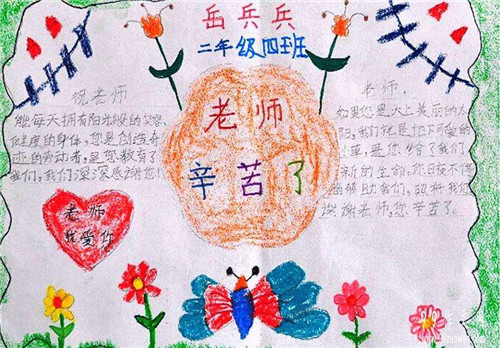 岳兵兵
二年级四班
老师
辛苦了
祝老师
能每天拥有阳光般的笑容,
健康的身体,您是创造奇
迹的劳动者,是您教育了
我们,我们深深感谢您!
老师
我爱你
老师,
如果您是天上美丽的太
阳,我们就是地下可爱的
草,是您给了我们
新的生命,您日夜不
的帮助我们,照料我们
谢老师,您辛苦了。